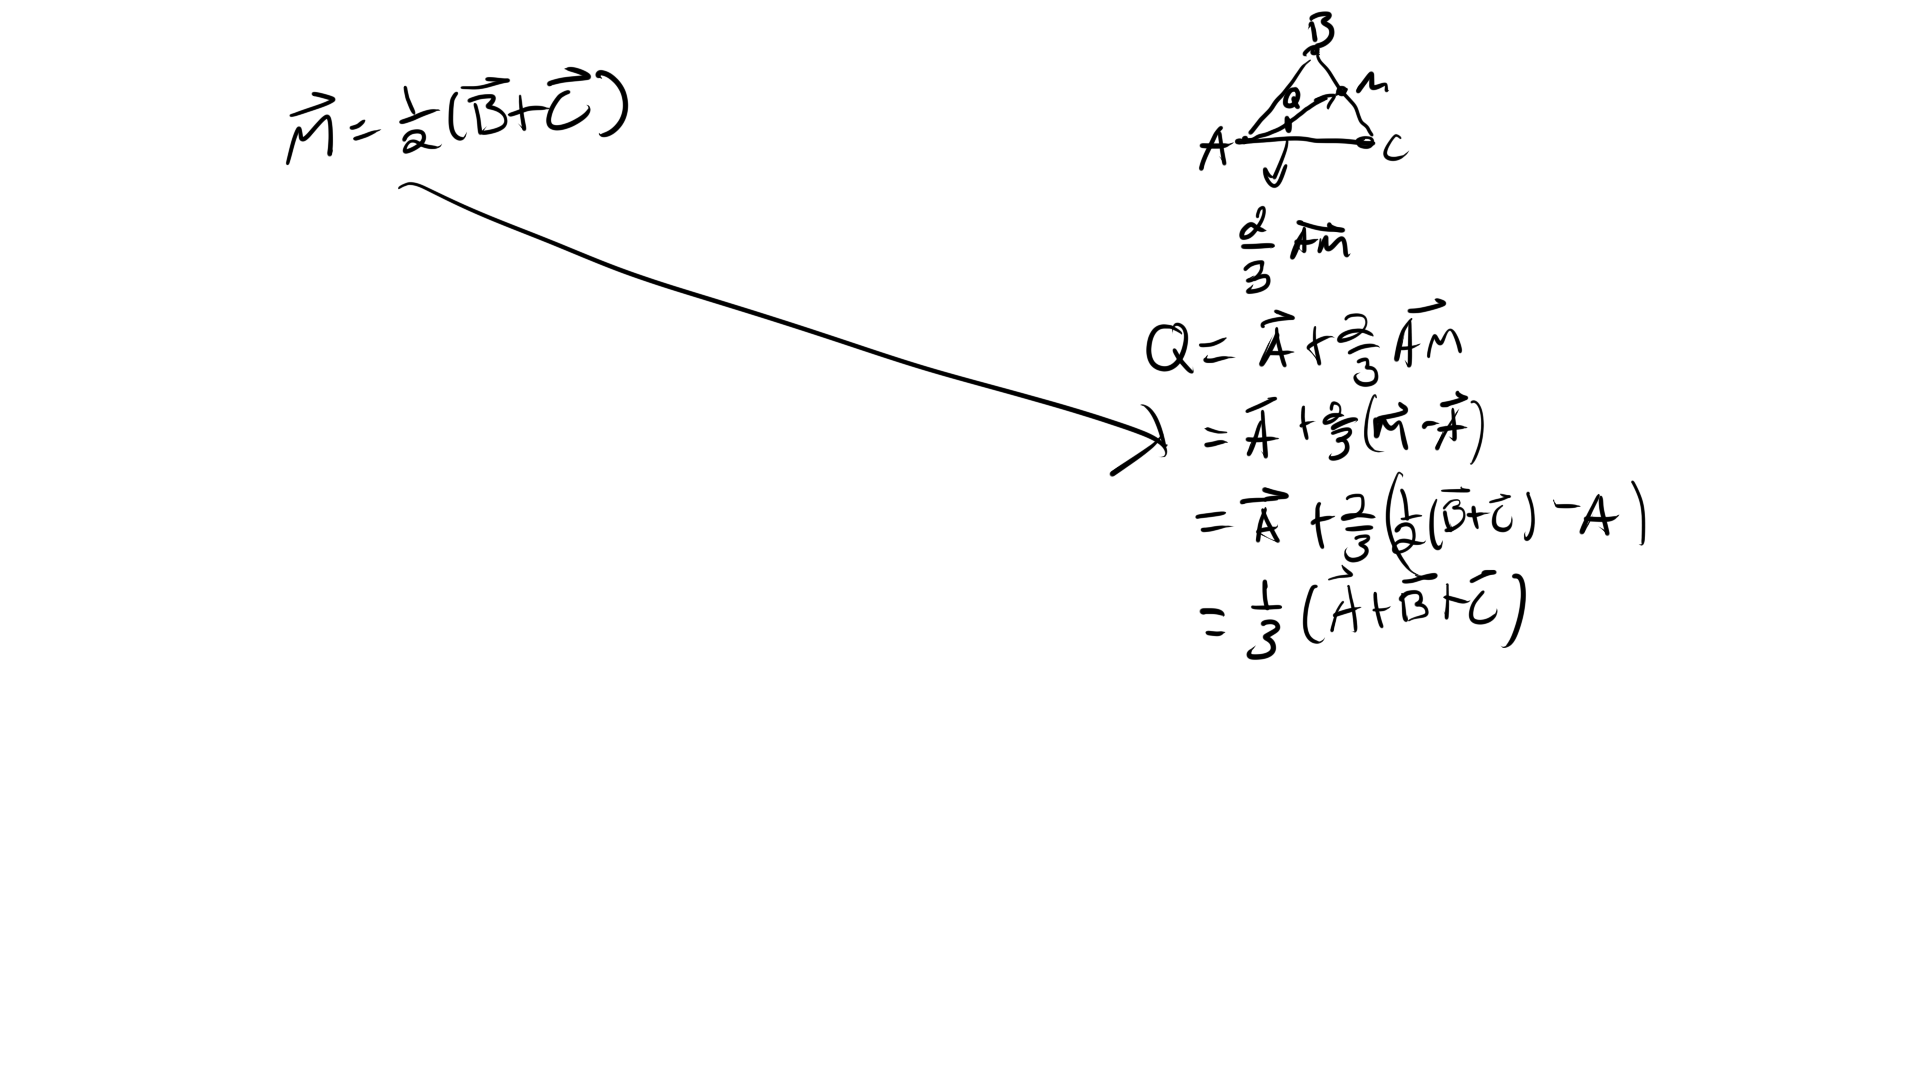 M⃗ = 1/2 (B⃗ + C⃗)
B
M
Q
A
C
2/3 AM⃗
Q = A⃗ + 2/3 AM⃗
= A⃗ + 2/3 (M⃗ - A⃗)
= A⃗ + 2/3 (1/2 (B⃗ + C⃗) - A)
= 1/3 (A⃗ + B⃗ + C⃗)